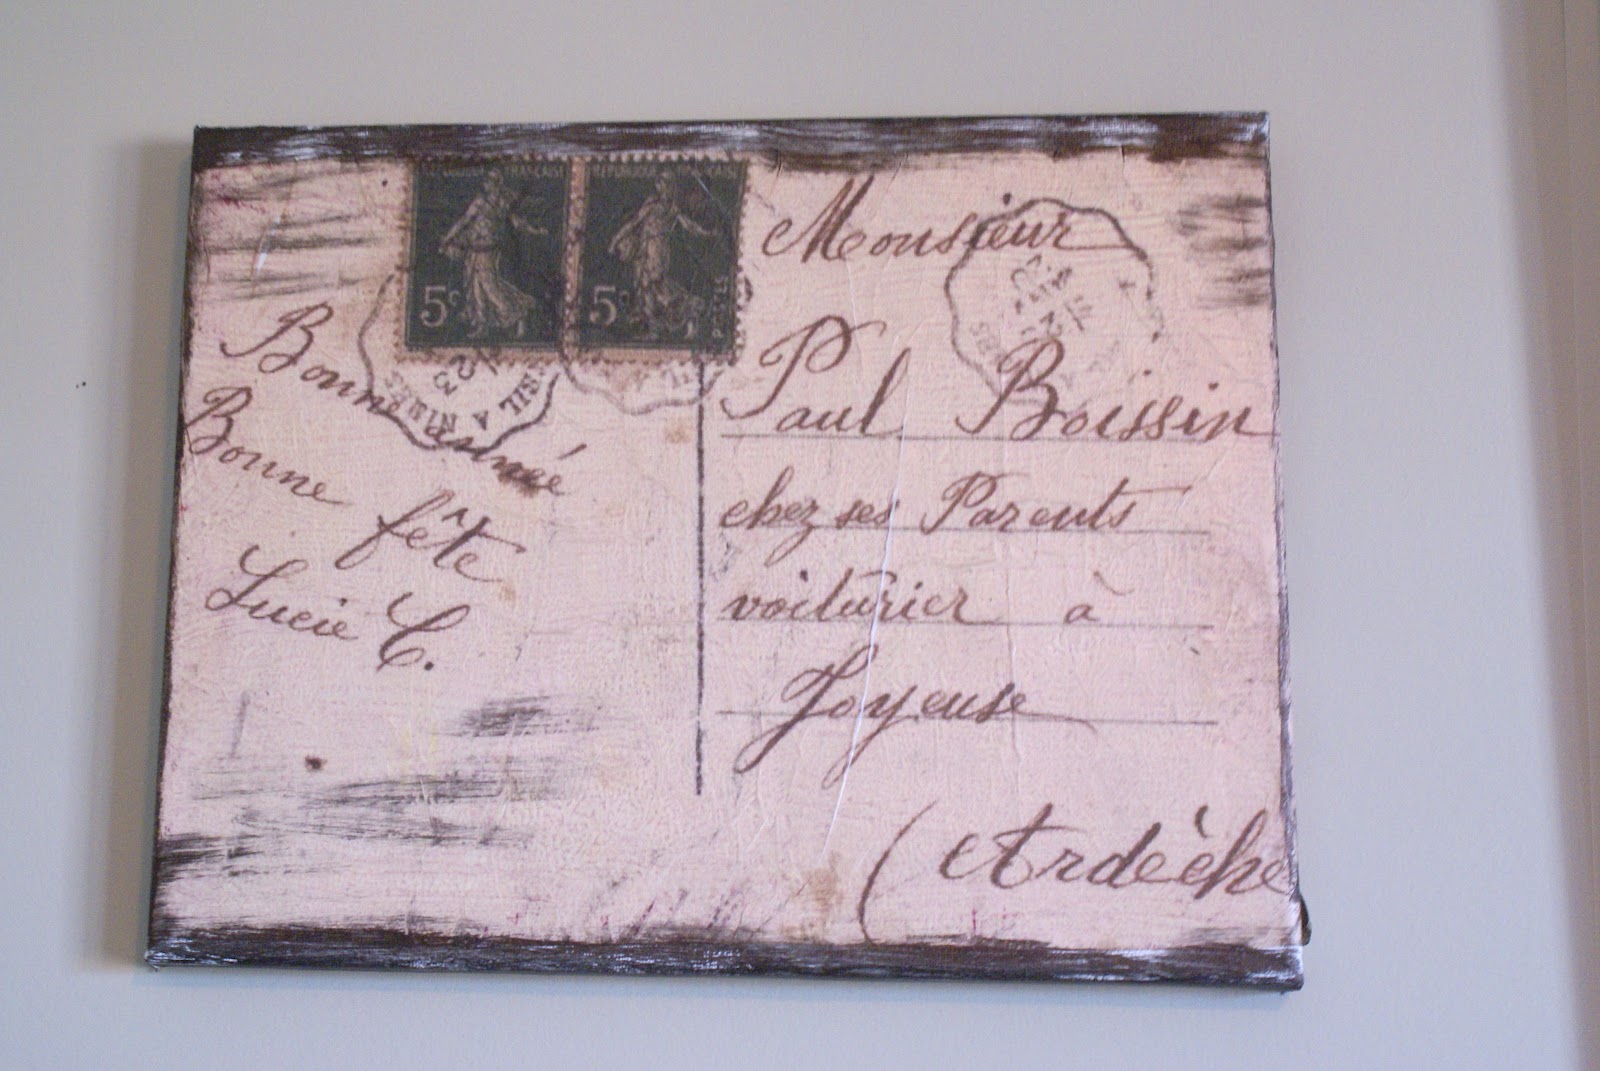 RÉPUBLIQUE FRANÇAISE
5c
RÉPUBLIQUE FRANÇAISE
5c
Bonne année
Bonne fête
Lucie C.
Monsieur
Paul Boissin
chez ses Parents
voiturier à
Joyeuse
(Ardèche